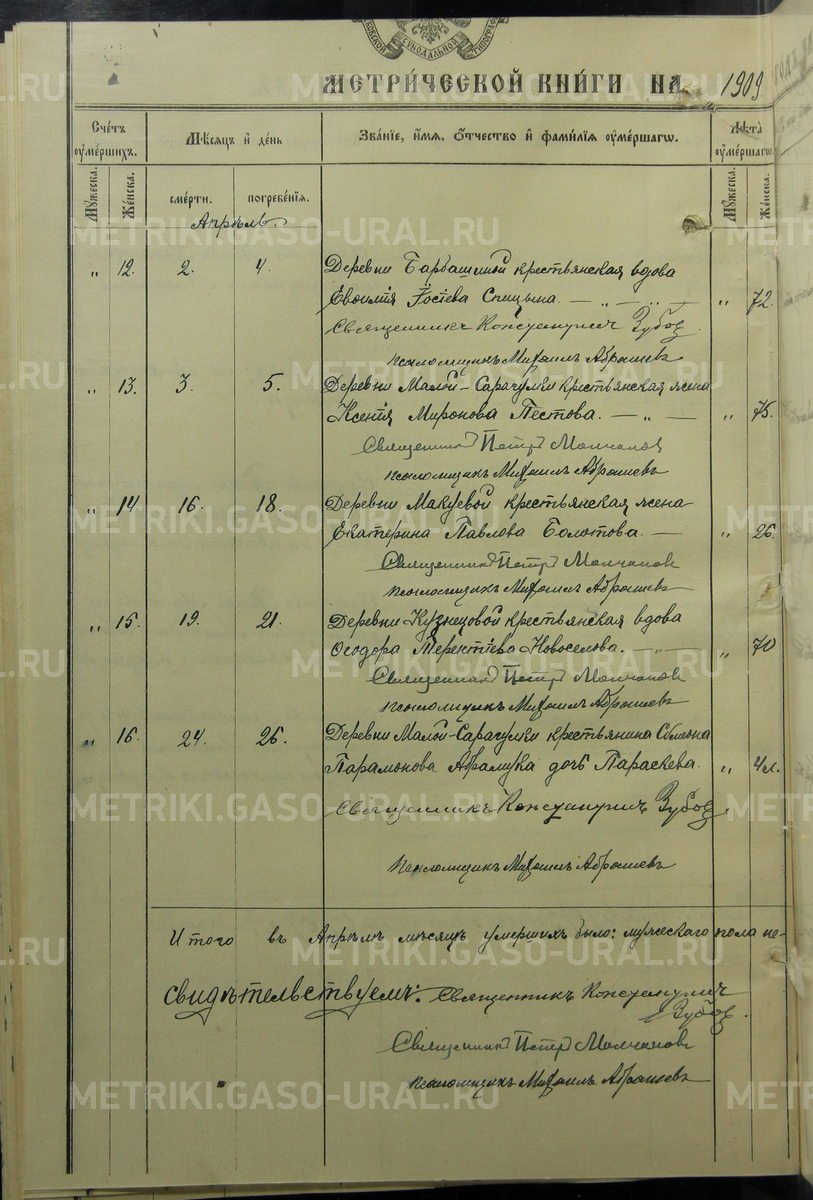 СѴНОДАЛЬНОЙ
МЕТРИ́ЧЕСКОЙ КНИ́ГИ НА 1909
Сче́тъ оуме́ршихъ.
Мѣ́сяцъ и҆ де́нь
Зва́нїе, и҆́мя, ѻ҆́тчество и҆ фами́лїя оуме́ршагѡ.
Лѣта̀ оуме́ршагѡ.
Му́жеска.
Же́нска.
сме́рти.
погребе́нїя.
Му́жеска.
Же́нска.
Апрѣль.
„ 12. 2. 4. Деревни Барбашиной крестьянская вдова
Евѳимія Спицына. — „ — „ — „ 72.
Священникъ Константинъ Зубов.
псаломщикъ Михаилъ Абрашевъ
„ 13. 3. 5. Деревни Малой-Сарагулки крестьянская жена
Ксенія Миронова Пестова. — „ — „ 75.
Священник Петр Молчанов
псаломщикъ Михаилъ Абрашевъ
„ 14. 16. 18. Деревни Макуевой крестьянская жена
Екатерина Павлова Болотова. — „ 26.
Священник Петр Молчанов
псаломщикъ Михаилъ Абрашевъ
„ 15. 19. 21. Деревни Кузнецовой крестьянская вдова
Ѳеодора Терентіева Новоселова. — „ — „ 70
Священник Петр Молчанов
псаломщикъ Михаилъ Абрашевъ
„ 16. 24. 26. Деревни Малой-Сарагулки крестьянина
Парамонова дочь Параскева. „ 4 л.
Священникъ Константинъ Зубов
псаломщик Михаилъ Абрашевъ
Итого въ Апрѣлѣ мѣсяцѣ умершихъ было: мужескаго пола не-
свидѣтельствуемъ: Священникъ Константинъ
Зубов.
Священник Петр Молчановъ
псаломщикъ Михаилъ Абрашевъ
METRIKI.GASO-URAL.RU